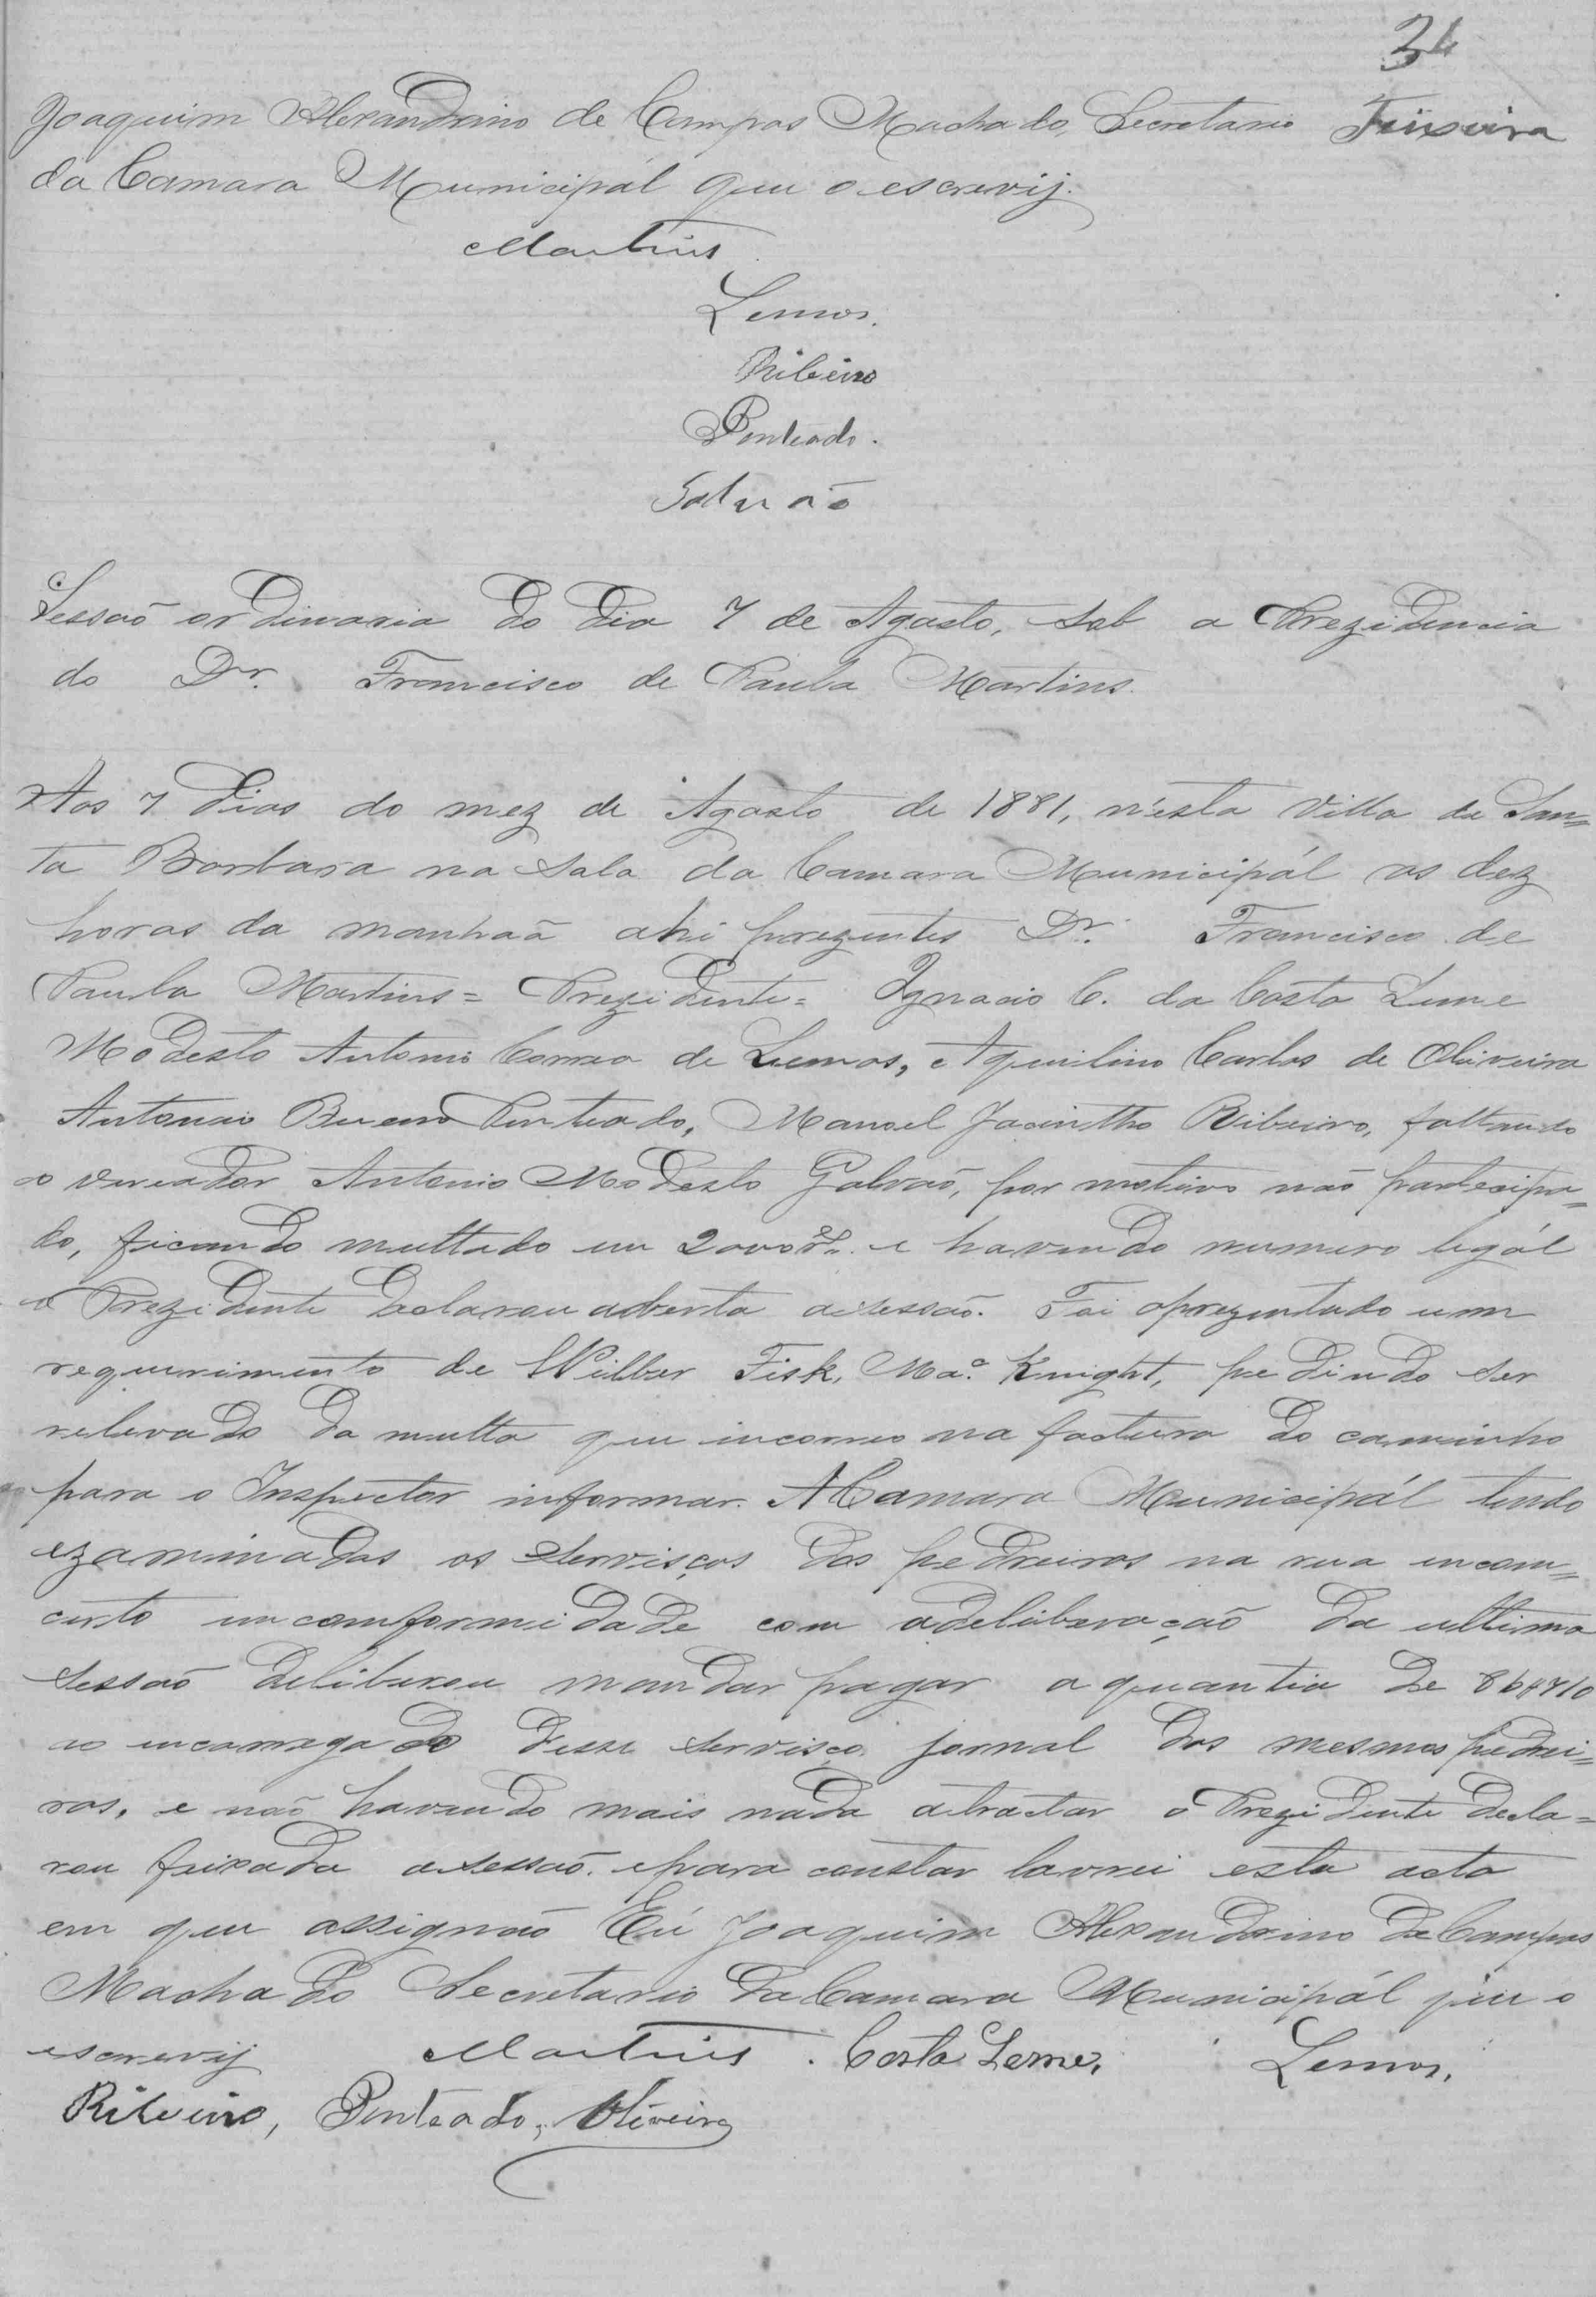 34
Joaquim Alexandrino de Campos Machado, Secretario Teixeira
da Camara Municipál que o escrevij.
Martins
Lemos.
Ribeiro
Penteado.
Galvão
Sessaõ ordinaria do dia 7 de Agosto, sob a Prezidencia
do Dr. Francisco de Paula Martins.
Aos 7 dias do mez de Agosto de 1881, n'esta Villa de San=
ta Barbara na sala da Camara Municipál as dez
horas da manhaã ahi prezentes Dr. Francisco de
Paula Martins = Prezidente = Ignacio C. da Costa Leme
Modesto Antonio Correa de Lemos, Aquilino Carlos de Oliveira
Antonio Bueno Penteado, Manoel Jacintho Ribeiro, faltando
o vereador Antonio Modesto Galvaõ, por motivo naõ partecipa=
do, ficando multado em 2000 rs. e havendo numero legál
o Prezidente declarou aberta a sessaõ. Foi aprezentado um
requerimento de Wilber Fisk, Ma.º Knight, pedindo ser
relevado da multa que incorreo na factura do caminho
para o Inspector informar. A Camara Municipál tendo
ezaminadas os servisços dos pedreiros na rua incom=
certo em comformidade com a deliberação da ultima
sessaõ deliberou mandar pagar a quantia de
ao encarregado desse servisço jornal dos mesmos pedrei=
ros, e naõ havendo mais nada a tractar o Prezidente decla=
rou feixada a sessaõ. e para constar lavrei esta acta
em que assignaõ Eu Joaquim Alexandrino de Campos
Machado Secretario da Camara Municipál que o
escrevij Martins. Costa Leme, Lemos,
Ribeiro, Penteado, Oliveira